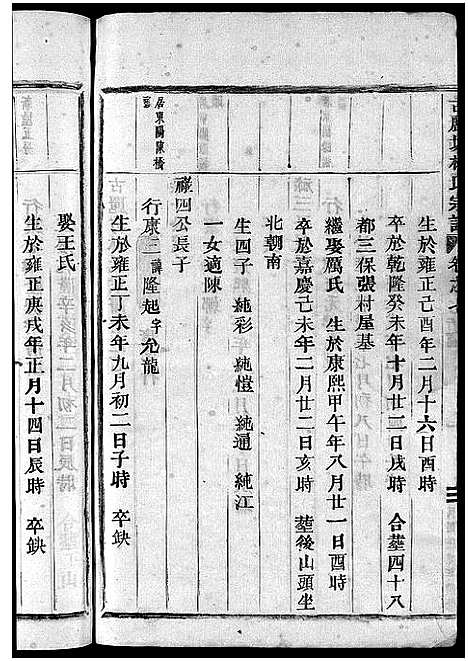 生於雍正己酉年二月十六日酉時
卒於乾隆癸未年十月廿二日戌時　合塟四十八
都三保張村屋基
繼娶厲氏　生於康熙甲午年八月廿一日酉時
卒於嘉慶己未年二月廿二日亥時　塟後山頭坐
北朝南
生四子　純彩　純愷　純通　純江
一女適陳
祿四公長子
居東陽陳橋
行康三諱隆起字允龍
生於雍正丁未年九月初二日子時　卒缺
娶王氏
生於雍正庚戌年正月十四日辰時　卒缺